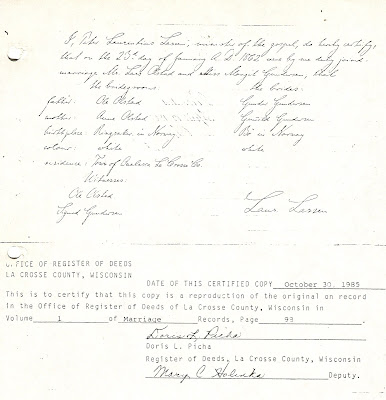 I, Peter Laurentius Larsen, minister of the gospel, do hereby certify,
that on the 23th day of January A. D. 1862 were by me duly joined
marriage Mr. Lars Olstad and Miss Margit Gundersen, that
the bridegrooms the brides:
father: Ole Olstad Gunder Gundersen
mother: Anne Olstad Gunild Gundersen
birthplace: Ringsaker in Norway Bö in Norway
colour: white white
residence: Town of Onalaska La Crosse Co.
Witnesses:
Ole Olstad
Sigurd Gundersen Laur. Larsen
OFFICE OF REGISTER OF DEEDS
LA CROSSE COUNTY, WISCONSIN
DATE OF THIS CERTIFIED COPY October 30, 1985
This is to certify that this copy is a reproduction of the original on record
in the Office of Register of Deeds of La Crosse County, Wisconsin in
Volume 1 of Marriage Records, Page 98
Doris L Picha
Doris L. Picha
Register of Deeds, La Crosse County, Wisconsin
Mary C Deputy.